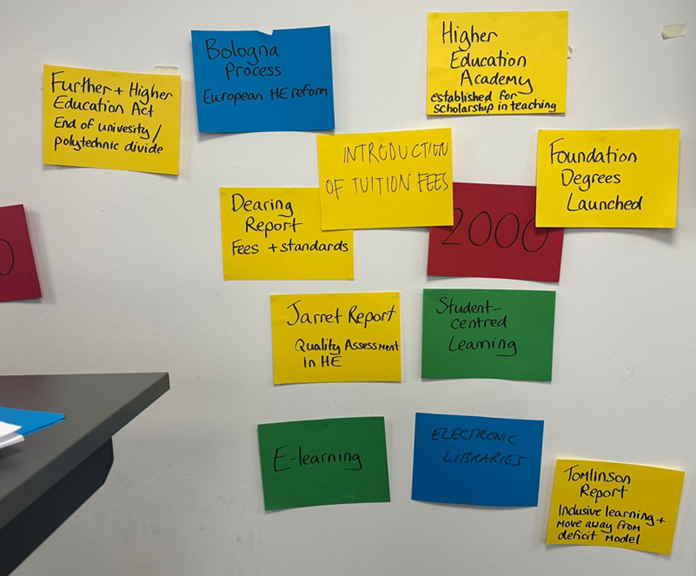 Further + Higher
Education Act
End of univesity/
polytechnic divide
Bologna
Process
European HE reform
Higher
Education
Academy
established for
Scholarship in teaching
INTRODUCTION
OF TUITION FEES
Foundation
Degrees
Launched
Dearing
Report
Fees + standards
2000
0
Jarret Report
Quality Assessment
in HE
Student-
centred
Learning
E-learning
ELECTRONIC
LIBRARIES
Tomlinson
Report
Inclusive learning +
move away from
deficit model